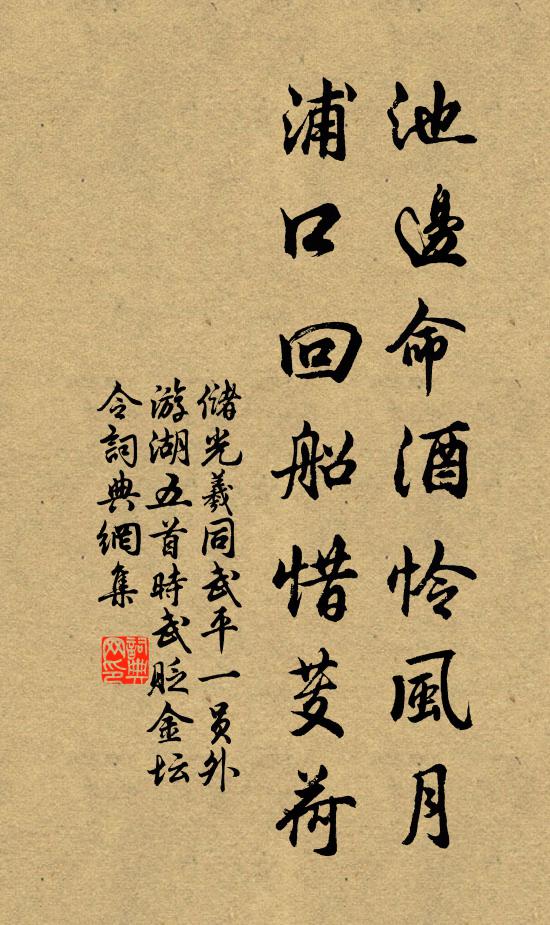 池邊命酒怜風月
浦口回船惜芰荷
儲光羲同武平一員外
游湖五首時武貶金坛
令詞典網集
詞典网印